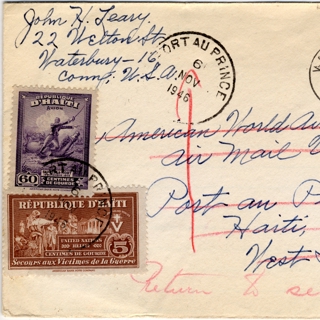 John H. Leary.
22 Welton St.
Waterbury-16,
Conn., U.S.A.
PORT AU PRINCE
6
NOV
1946
American World Air
Air Mail
Post au P
Haiti,
West
Return to se
REPUBLIQUE
D'HAITI
60 CENTIMES
DE GOURDE
RÉPUBLIQUE D'HAITI
UNITED NATIONS
RELIEF
V
5
CENTIMES DE GOURDE
Secours aux Victimes de la Guerre